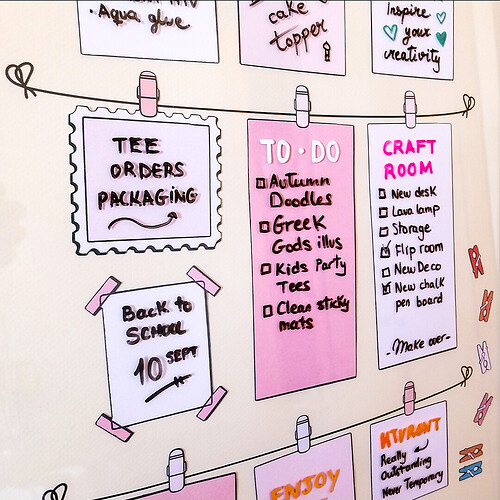 . Aqua glue
cake
topper
Inspire
your
creativity
TEE
ORDERS
PACKAGING
TO·DO
Autumn
Doodles
Greek
Gods illus
Kids Party
Tees
Clean sticky
mats
CRAFT
ROOM
New desk
Lava lamp
Storage
Flip room
New Deco
New chalk
pen board
-Make over-
Back to
SCHOOL
10 SEPT
ENJOY
Really
Outstanding
Never Temporary